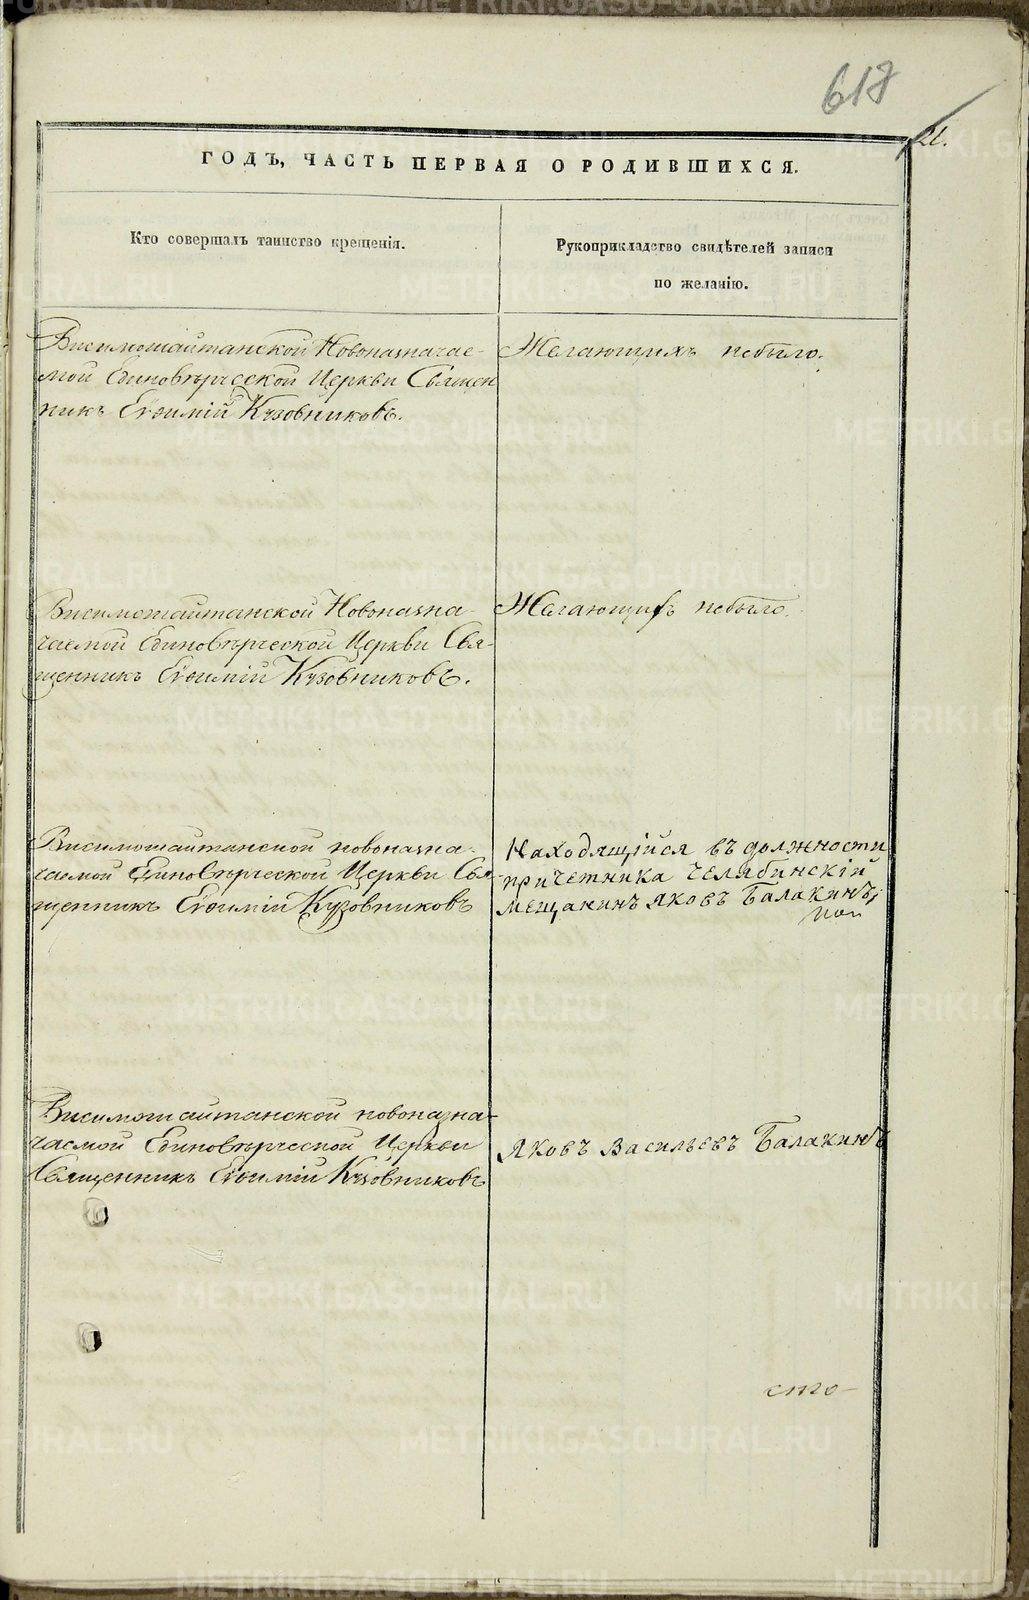 617
21.
ГОДЪ, ЧАСТЬ ПЕРВАЯ О РОДИВШИХСЯ.
Кто совершалъ таинство крещенія.
Рукоприкладство свидѣтелей записи
по желанію.
Висимошайтанской Новоназначае-
мой Единовѣрческой Церкви Священ
никъ Евѳимій Кузовниковъ.
Желающихъ небыло.
Висимошайтанской Новоназна-
чаемой Единовѣрческой Церкви Свя-
щенникъ Евѳимій Кузовниковъ.
Желающихъ небыло.
Висимошайтанской новоназна-
чаемой Единовѣрческой Церкви Свя
щенникъ Евѳимій Кузовниковъ
Находящійся въ должности
причетника Челябинскій
мещанинъ Яковъ Балакинъ
Висимошайтанской новоназна-
чаемой Единовѣрческой Церкви
Священникъ Евѳимій Кузовниковъ
Яковъ Васильевъ Балакинъ
сто-
METRIKI.GASO-URAL.RU